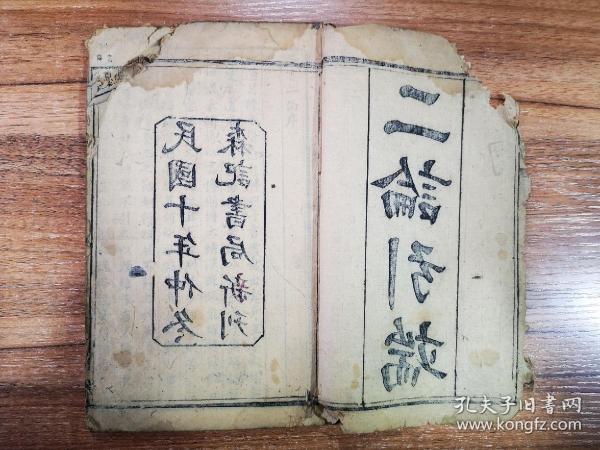 二論引端
民國十年仲冬
森記書局新刊
孔夫子旧书网
www.kongfz.com